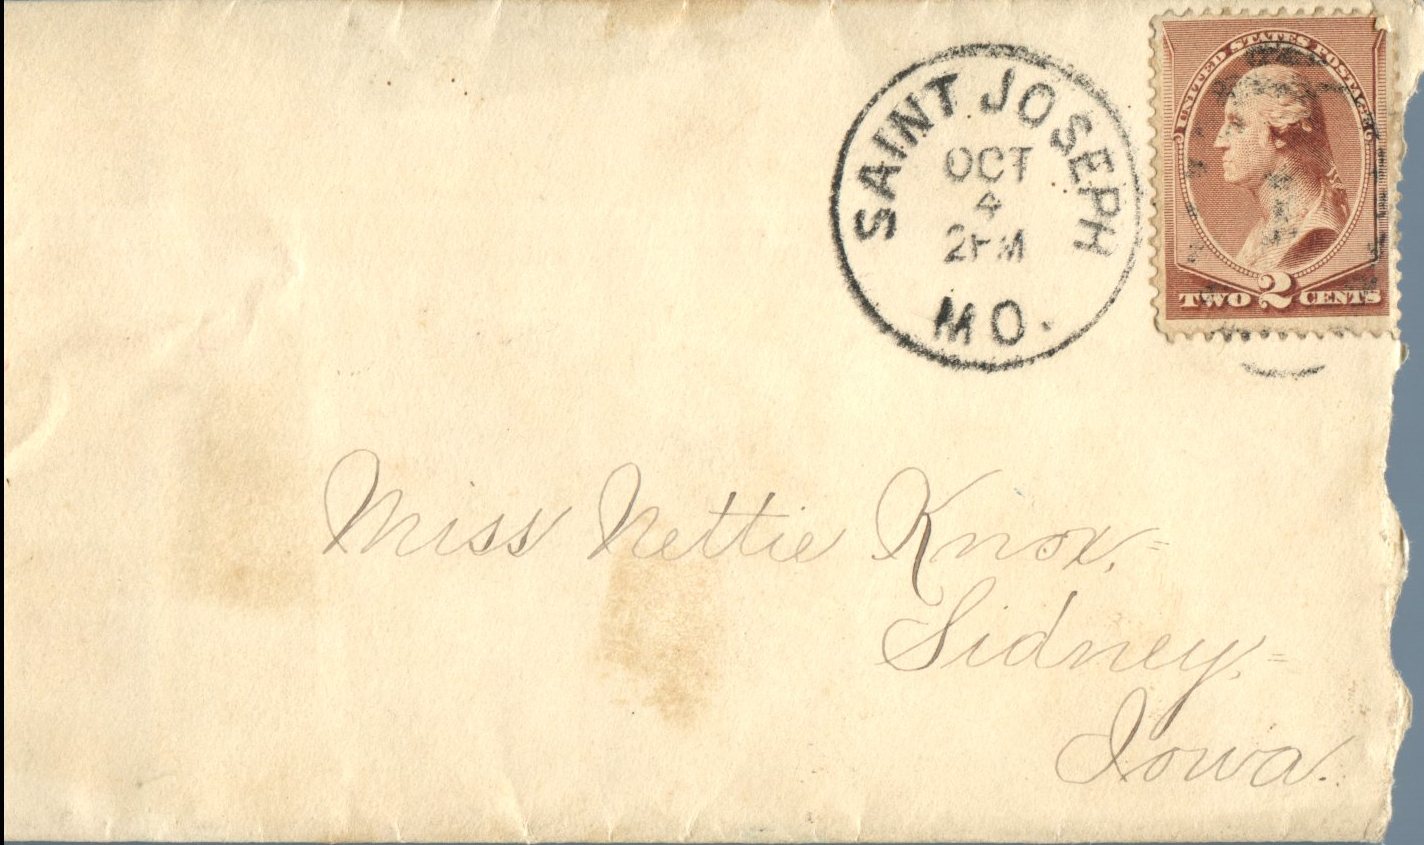 SAINT JOSEPH
OCT
4
2PM
MO.
UNITED STATES POSTAGE
TWO 2 CENTS
Miss Nettie Knox,
Sidney,
Iowa.